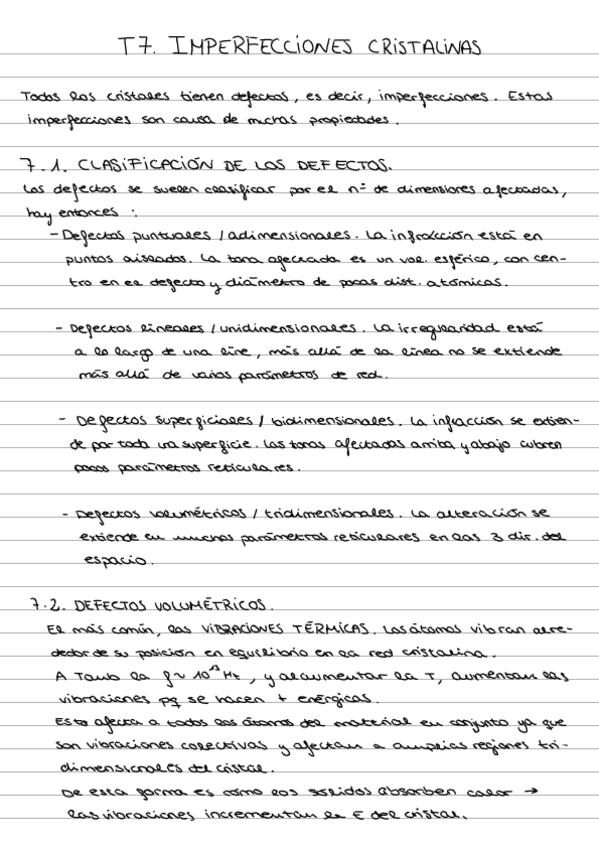 T7. IMPERFECCIONES CRISTALINAS
Todos los cristales tienen defectos, es decir, imperfecciones. Estas
imperfecciones son causa de muchas propiedades.
7.1. CLASIFICACIÓN DE LOS DEFECTOS.
Los defectos se suelen clasificar por el nº de dimensiones afectadas,
hay entonces :
- Defectos puntuales / adimensionales. La infracción está en
puntos aislados. La zona afectada es un vol. esférico, con cen-
tro en el defecto y diámetro de pocas dist. atómicas.
- Defectos lineales / unidimensionales. La irregularidad está
a lo largo de una line, más allá de la línea no se extiende
más allá de varios parámetros de red.
- Defectos superficiales / bidimensionales. La infracción se extien-
de por toda una superficie. Las zonas afectadas arriba y abajo cubren
pocos parámetros reticulares.
- Defectos volumétricos / tridimensionales. La alteración se
extiende en muchos parámetros reticulares en las 3 dir. del
espacio.
7.2. DEFECTOS VOLUMÉTRICOS.
El más común, las VIBRACIONES TÉRMICAS. Los átomos vibran alre-
dedor de su posición en equilibrio en la red cristalina.
A Tamb la f ~ 10¹³ Hz, y al aumentar la T, aumentan las
vibraciones pq se hacen + enérgicas.
Esto afecta a todos los átomos del material en conjunto ya que
son vibraciones colectivas y afectan a amplias regiones tri-
dimensionales del cristal.
De esta forma es como los sólidos absorben calor →
las vibraciones incrementan la E del cristal.